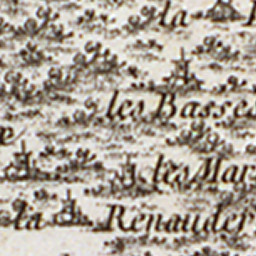 la
les Basses
les Mar
la Renauder